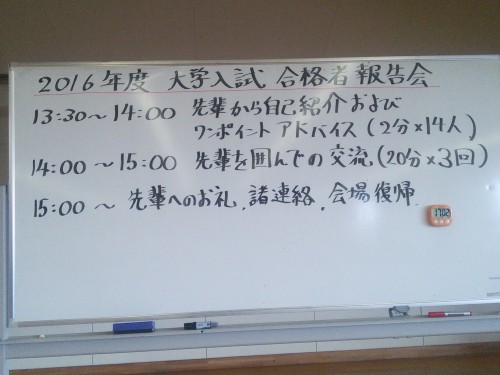 2016年度 大学入試 合格者 報告会
13:30～14:00 先輩から自己紹介および
ワンポイントアドバイス(2分×14人)
14:00～15:00 先輩を囲んでの交流,(20分×3回)
15:00～ 先輩へのお礼,諸連絡,会場復帰